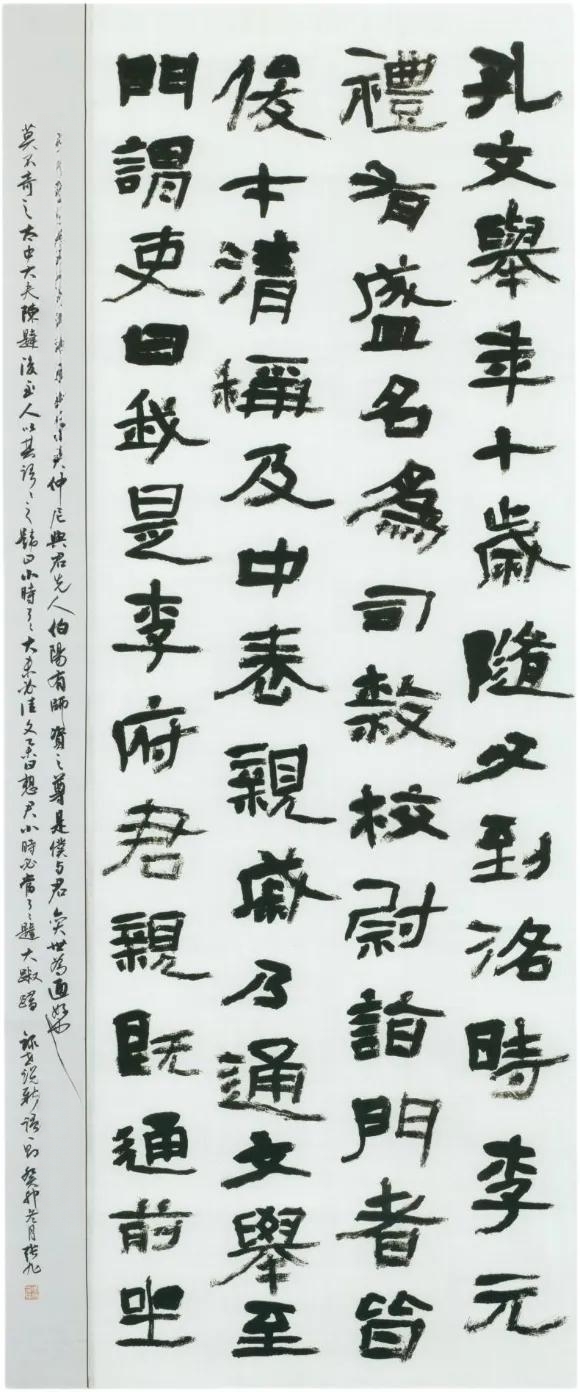 孔文舉年十歲隨父到洛時李元
禮有盛名爲司隸校尉詣門者皆
俊才清稱及中表親戚乃通文舉至
門謂吏曰我是李府君親既通前坐
仲尼與君先人伯陽有師資之尊是僕与君奕世爲通好也
莫不奇之太中大夫陳韙後至人以其語〻之韙曰小時了〻大未必佳文舉曰想君小時必當了〻韙大踧踖 錄世說新語一則 癸卯冬月